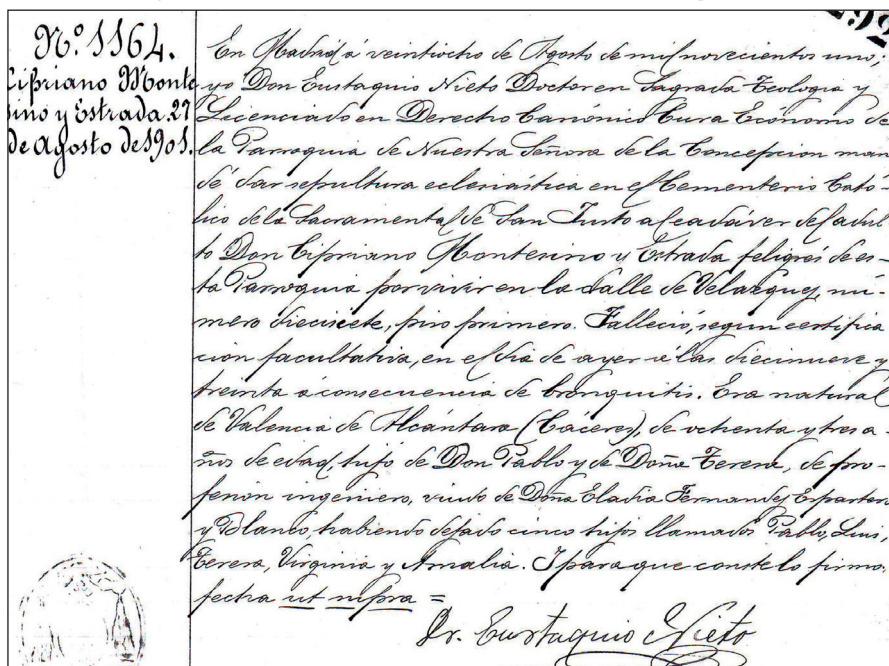 292
Nº. 1164.
Cipriano Monte
sino y Estrada 27
de Agosto de 1901.
En Madrid á veintiocho de Agosto de mil novecientos uno;
yo Don Eustaquio Nieto Doctor en Sagrada Teologia y
Licenciado en Derecho Canónico Cura Ecónomo de
la Parroquia de Nuestra Señora de la Concepcion man
dé dar sepultura eclesiástica en el Cementerio Cató-
lico de la Sacramental de San Justo al cadáver del adul
to Don Cipriano Montesino y Estrada feligrés de es-
ta Parroquia por vivir en la calle de Velazquez, nú-
mero diecisiete, piso primero. Falleció, segun certifica
cion facultativa, en el dia de ayer á las diecinueve y
treinta a consecuencia de bronquitis. Era natural
de Valencia de Alcántara (Cáceres), de ochenta y tres a-
ños de edad, hijo de Don Pablo y de Doña Teresa, de pro-
fesión ingeniero, viudo de Doña Eladia Fernandez Espartero
y Blanco, habiendo dejado cinco hijos llamados Pablo, Luis,
Teresa, Virginia y Amalia. Y para que conste lo firmo,
fecha ut supra =
Dr. Eustaquio Nieto